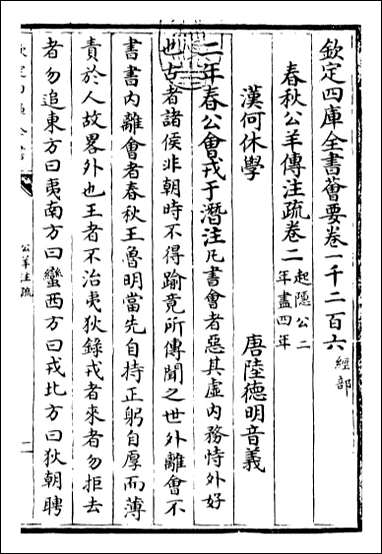 欽定四庫全書薈要卷一千二百六 經部
春秋公羊傳注疏卷二 起隱公二
年盡四年
漢何休學 唐陸德明音義
二年春公會戎于潛注凡書會者惡其虛內務恃外好
也古者諸侯非朝時不得踰竟所傳聞之世外離會不
書書內離會者春秋王魯明當先自持正躬自厚而薄
責於人故畧外也王者不治夷狄錄戎者來者勿拒去
者勿追東方曰夷南方曰蠻西方曰戎北方曰狄朝聘
公羊注疏